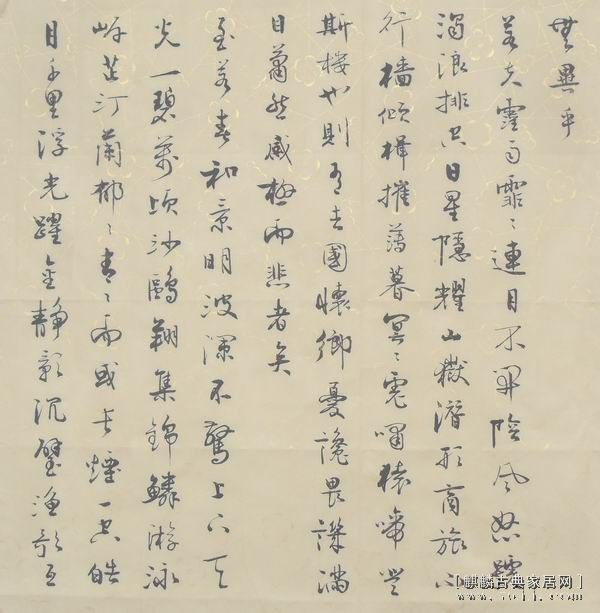 無異乎
若夫霪雨霏〻連月不開陰風怒號
濁浪排空日星隱耀山嶽潛形商旅不
行檣傾楫摧薄暮冥〻虎嘯猿啼登
斯樓也則有去國懷鄉憂讒畏譏滿
目蕭然感極而悲者矣
至若春和景明波瀾不驚上下天
光一碧萬頃沙鷗翔集錦鱗游泳
岸芷汀蘭郁〻青〻而或長煙一空皓
月千里浮光躍金靜影沉璧漁歌互
[麒麟古典家居网]